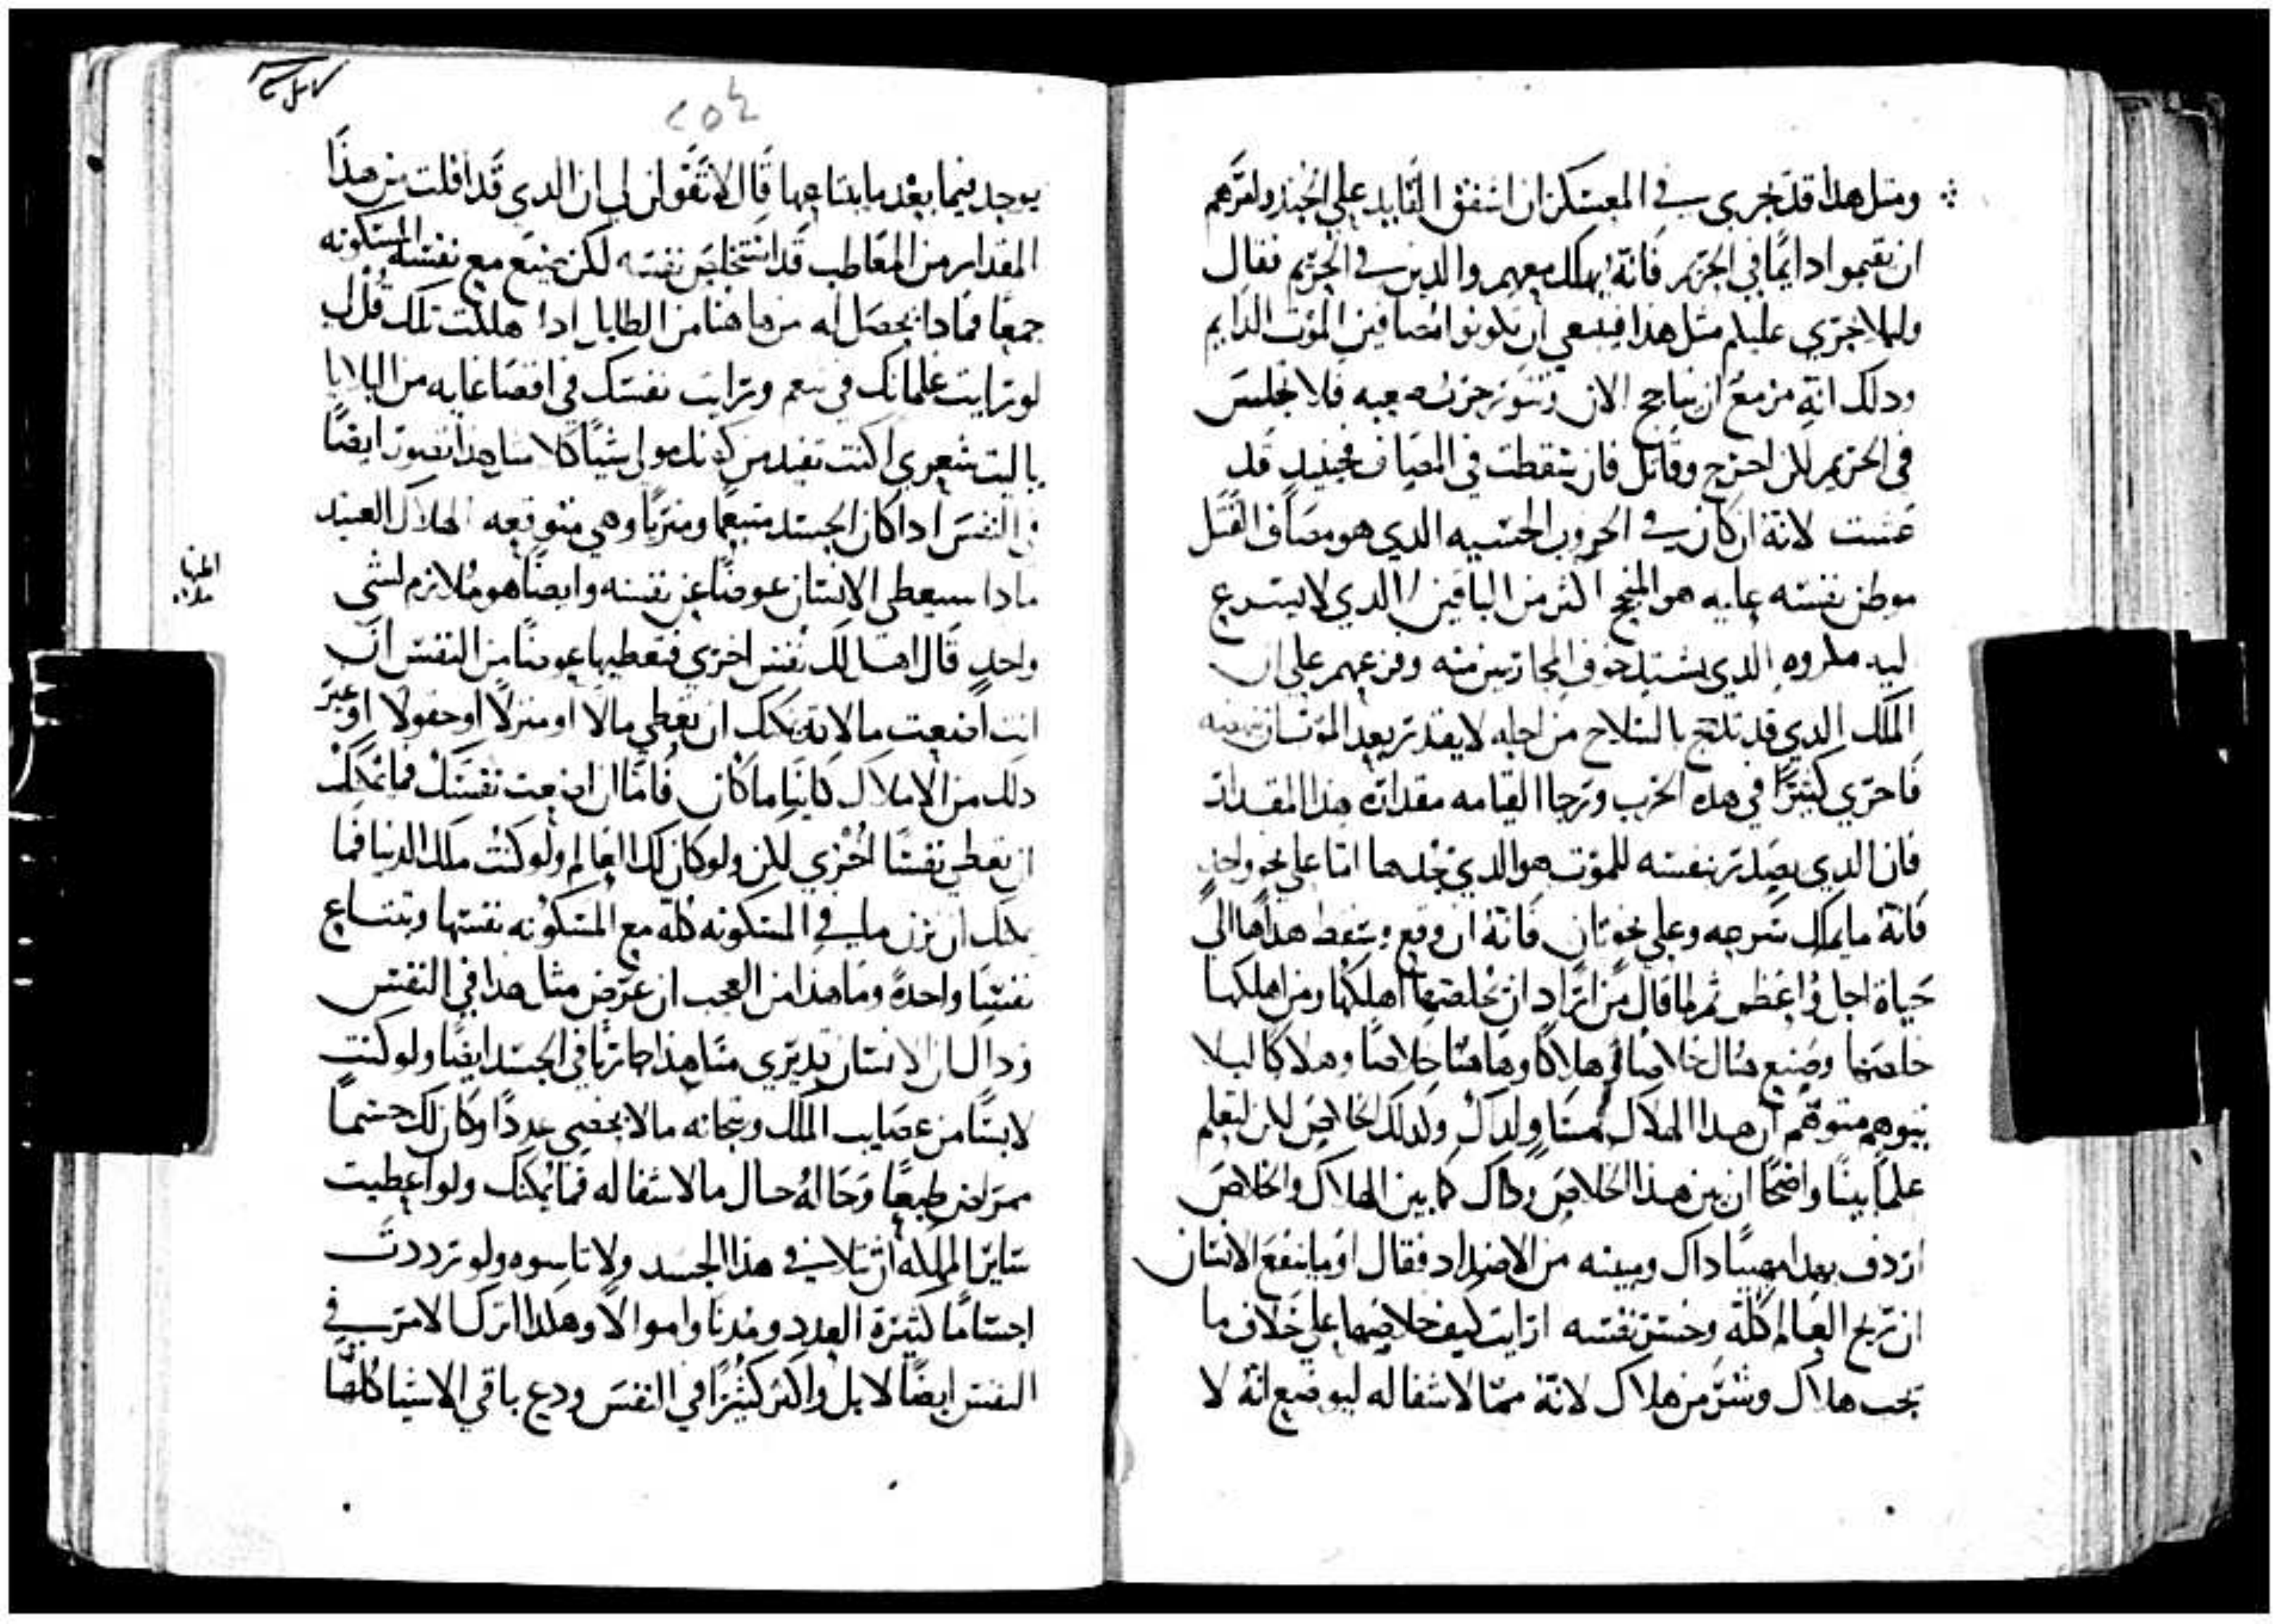 ومثل هذا قد يجري في المعسكر ان اشفق القايد علي الجند وامرهم
ان يقيموا دايمًا في الحريم فانه يهلك معهم والذين في الحريم فقال
وليلا يجري عليكم مثل هذا فينبغي ان تكونوا مصافين الموت الدايم
ودلك انه مزمع ان يتاجج الان وتثور حرب صعبه فلا تجلس
في الحريم لكن اخرج وقاتل فان سقطت في المصاف فحينيد قد
عشت لانه ان كان في الحروب الحسيه الدي هو مصاف القتل
موطن نفسه عليه هو المنجح اكثر من الباقين الدي لا يسرع
اليه مكروه الدي يشتد خوف المحاربين منه وفزعهم علي ان
الملك الدي قد تدجج بالسلاح من اجله لا يقدر بعد الموت ان يقيمه
فاحري كثيرًا في هده الحرب ورجا القيامه مقداره هدا المقدار
فان الدي يصدر نفسه للموت هو الدي يجدها اما علي نحو واحد
فانه ما يملك سرعه وعلي نحو ثان فانه ان وقع وسقط هداها الي
حياة اجل واعظم ثم لما قال من اراد ان يخلصها اهلكها ومن اهلكها
خلصها وضع هنال خلاصا وهلاكًا وهاهنا خلاصًا وهلاكًا ليلا
يتوهم متوهم ان هدا الهلاك وداك ولدلك الخلاص لكن لتعلم
علمًا بينًا واضحًا ان بين هدا الخلاص وداك كما بين الهلاك والخلاص
اردف بعد داك وبينه من الاضداد فقال او ما ينفع الانسان
ان تربح العالم كله وخسر نفسه ارايت كيف خلاصها علي خلاف ما
يجب هلاك وشر من هلاك لانه مما لا شفا له ليوضع انه لا
٢٥٤
يوجد فيما بعد ما يبتاعها قال لا تقولن لي ان الدي قد افلت من هذا
المقدار من المعاطب قد استخلص نفسه لكن ضع مع نفسه المسكونه
جمعًا فمادا يحصل له من هاهنا من الطايل ادا هلكت تلك قل لي
لو رايت غلمانك في نعم ورايت نفسك في اقصا غايه من البلايا
يا ليت شعري اكنت تفيد من كونك مولي شيًا كلا هدا تصور ايضًا
في النفس ادا كان الجسد متنعمًا ومتربًا وهي متوقعه الهلاك العتيد
مادا سيعطي الانسان عوضًا عن نفسه وايضًا هو ملازم لشي
واحد قال اما لك نفس اخري فتعطيها عوضًا من النفس ان
انت اضعت مالا يمكنك ان تعطي مالا او منزلًا او حقولا او غير
دلك من الاملاك كاينا ما كان فاما ان اضعت نفسك فما يمكنك
ان تعطي نفسًا اخري لكن ولو كان لك العالم ولو كنت ملك الدنيا فما
يمكنك ان تزن ما في المسكونه كله مع المسكونه نفسها وتبتاع
نفسًا واحدةً وما هدا من العجب ان عرض مثل هدا في النفس
وداك ان الانسان قد يري مثل هذا جاريًا في الجسد ايضًا ولو كنت
لابسًا من عصايب الملك وتيجانه مالا يحصي عددًا وكان لك جسمًا
ممراض طبعًا وحاله حال مالا شفا له فما يمكنك ولو اعطيت
ساير المملكه ان تلافي هذا الجسد ولا تاسوه ولو ترددت
اجسامًا كثيرة العدد ومدنًا واموالًا وهكدا ادرك الامر في
النفس ايضًا لا بل واكثر كثيرًا في النفس ودع باقي الاشيا كلها